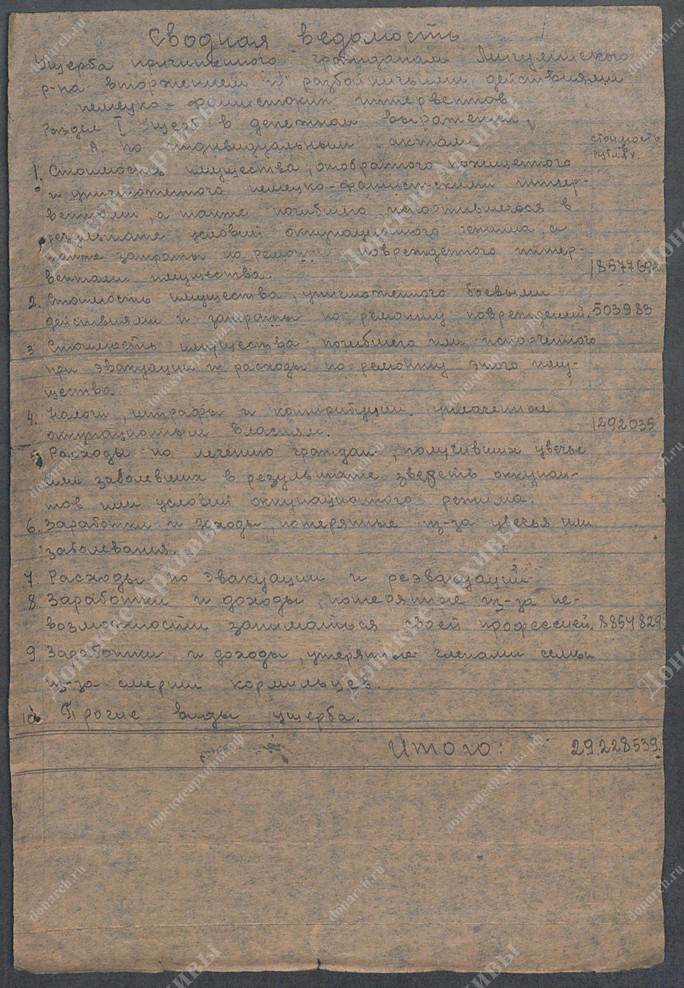 Сводная ведомость
Ущерба причиненного гражданам Мигулинского
р-на вторжением и разбойничьими действиями
немецко-фашистских интервентов
Раздел I ущерб в денежном выражении
А. по индивидуальным актам
стоимость
рублях
1. Стоимость имущества, отобранного похищенного
и уничтоженного немецко-фашистскими интер-
вентами, а также погибшего, испортившегося в
результате условий оккупационного режима, а
также затраты по ремонту поврежденного интер-
вентами имущества.
2. Стоимость имущества, уничтоженного боевыми
действиями и затраты по ремонту поврежден. 503983
3. Стоимость имущества погибшего или испорченного
при эвакуации и расходы по ремонту этого иму-
щества
4. Налоги, штрафы и контрибуции, уплаченные
оккупационным властям. 1292035
5. Расходы по лечению граждан, получивших увечье
или заболевших в результате зверств оккупан-
тов или условий оккупационного режима.
6. Заработки и доходы, потерянные из-за увечья или
заболевания.
7. Расходы по эвакуации и реэвакуации
8. Заработки и доходы, потерянные из-за не-
возможности заниматься своей профессией. 8854829
9. Заработки и доходы, утерянные членами семьи
из-за смерти кормильцев.
10. Прочие виды ущерба.
Итого: 29.228.539